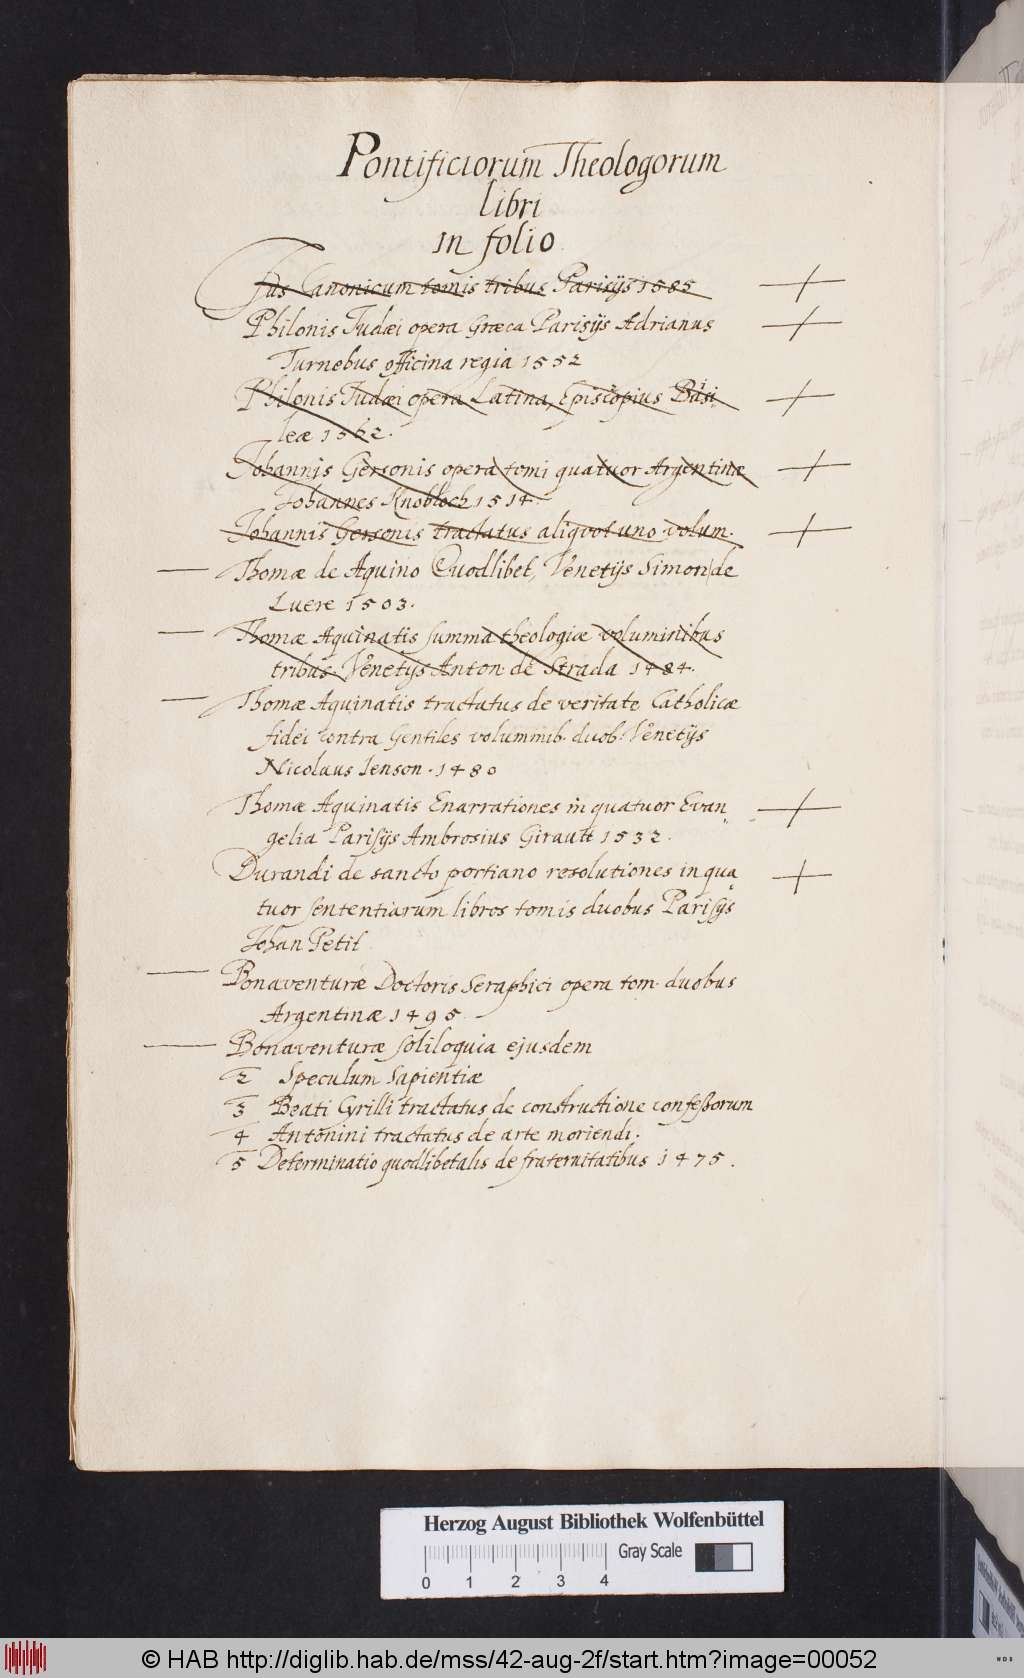 Pontificiorum Theologorum
libri
in folio
Jus Canonicum tomis tribus Parisijs 1585
Philonis Judæi opera Græca Parisijs Adrianus
Turnebus officina regia 1552
Philonis Judæi opera Latina, Episcopius Basi
leæ 1562.
Johannis Gersonis opera tomi quatuor Argentinæ
Johannes Knobloch 1514.
Johannis Gersonis tractatus aliqvot uno volum.
Thomæ de Aquino Quodlibet, Venetijs Simon de
Luere 1503.
Thomæ Aquinatis summa theologiæ voluminibus
tribus. Venetijs Anton. de Strada 1484.
Thomæ Aquinatis tractatus de veritate Catholicæ
fidei contra Gentiles voluminib. duob. Venetijs
Nicolaus Jenson. 1480
Thomæ Aquinatis Enarrationes in quatuor Evan
gelia Parisijs Ambrosius Girault 1532.
Durandi de sancto portiano resolutiones in qua
tuor sententiarum libros tomis duobus Parisijs
Johan Petit
Bonaventuræ Doctoris Seraphici opera tom. duobus
Argentinæ 1495.
Bonaventuræ soliloquia ejusdem
2 Speculum Sapientiæ
3 Beati Cyrilli tractatus de constructione confeßorum
4 Antonini tractatus de arte moriendi.
5 Determinatio quodlibetalis de fraternitatibus 1475.
Herzog August Bibliothek Wolfenbüttel
Gray Scale
0 1 2 3 4
© HAB http://diglib.hab.de/mss/42-aug-2f/start.htm?image=00052